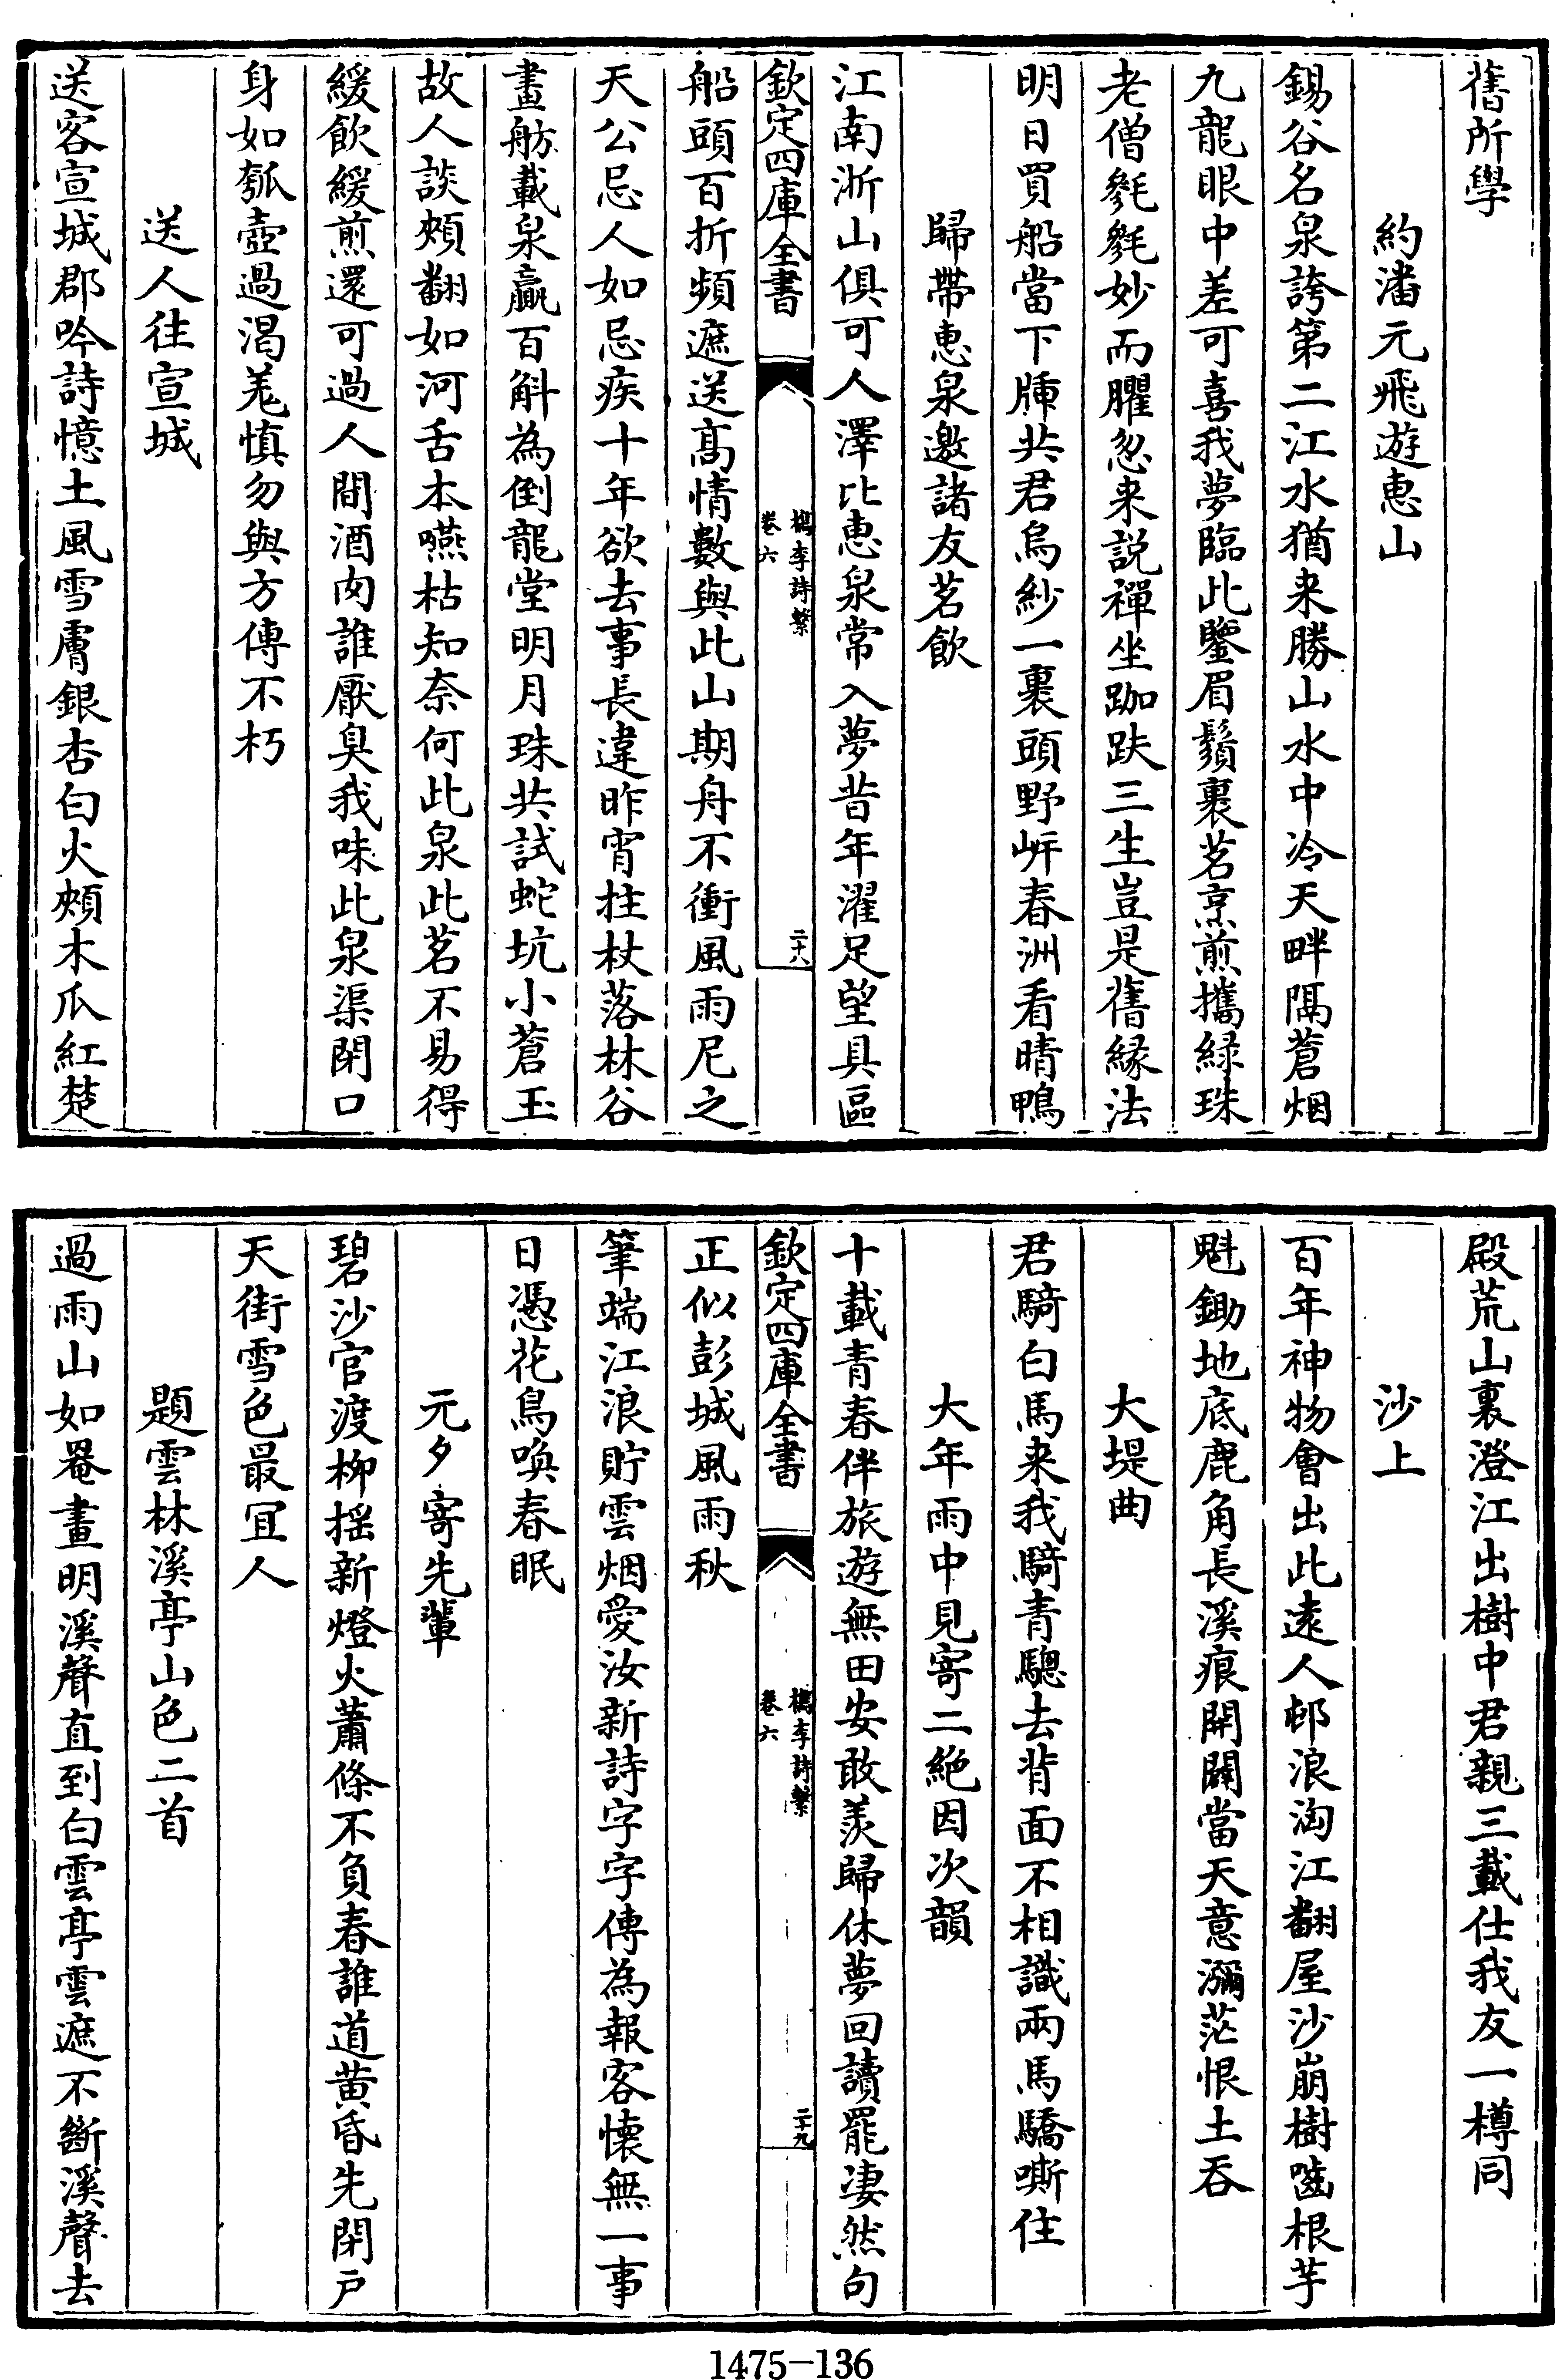 舊所學
約潘元飛遊惠山
錫谷名泉誇第二江水猶来勝山水中冷天畔隅蒼烟
九龍眼中差可喜我夢臨此鑒眉鬚裹茗烹煎攜緑珠
老僧毿毿妙而臞忽来説禪坐跏趺三生豈是舊緣法
明日買船當下牐共君烏紗一裹頭野岍春洲看晴鴨
歸帶惠泉邀諸友茗飲
江南浙山俱可人澤比惠泉常入夢昔年濯足望具區
欽定四庫全書
檇李詩繫
卷六
二十八
船頭百折頻遮送髙情數與此山期舟不衝風雨尼之
天公忌人如忌疾十年欲去事長違昨宵拄杖落林谷
畫舫載泉贏百斛為倒龍堂明月珠共試蛇坑小蒼玉
故人談頰翻如河舌本嚥枯知奈何此泉此茗不易得
緩飲緩煎還可過人間酒肉誰厭臭我味此泉渠閉口
身如瓠壺過渴羌慎勿與方傳不朽
送人往宣城
送客宣城郡吟詩憶土風雪膚銀杏白火頰木瓜紅楚
殿荒山裏澄江出樹中君親三載仕我友一樽同
沙上
百年神物會出此逺人邨浪淘江翻屋沙崩樹嚙根芋
魁鋤地底鹿角長溪痕開闢當天意瀰茫恨土吞
大堤曲
君騎白馬来我騎青驄去背面不相識兩馬驕嘶住
大年雨中見寄二絶因次韻
十載青春伴旅遊無田安敢羡歸休夢回讀罷凄然句
欽定四庫全書
檇李詩繫
卷六
二十九
正似彭城風雨秋
筆端江浪貯雲烟愛汝新詩字字傳為報客懷無一事
日憑花鳥喚春眠
元夕寄先輩
碧沙官渡栁揺新燈火蕭條不負春誰道黄昏先閉户
天街雪色最宜人
題雲林溪亭山色二首
過雨山如罨畫明溪聲直到白雲亭雲遮不斷溪聲去
1475—136